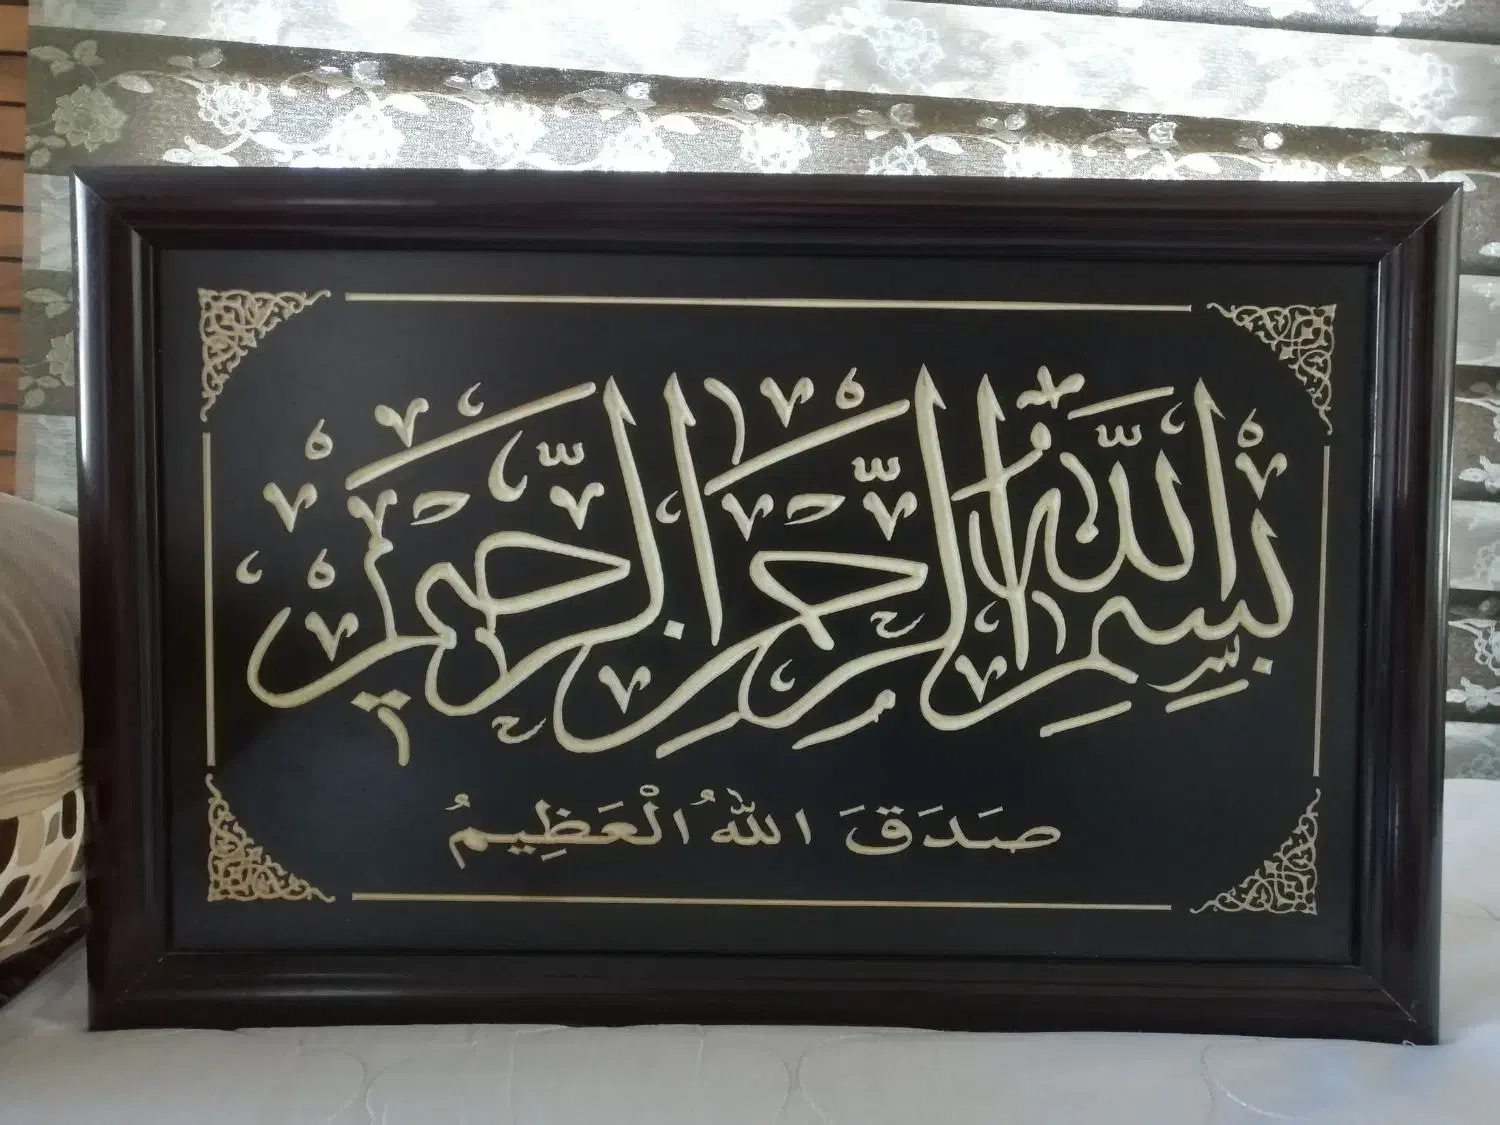 بِسْمِ اللَّهِ الرَّحْمَنِ الرَّحِيمِ
صَدَقَ اللَّهُ الْعَظِيمُ